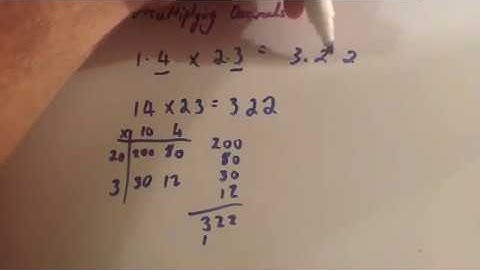 Multiplying Decimals
1.4 x 2.3 = 3.22
14 x 23 = 322
x 10 4
20 200 80
3 30 12
200
80
30
12
322
1